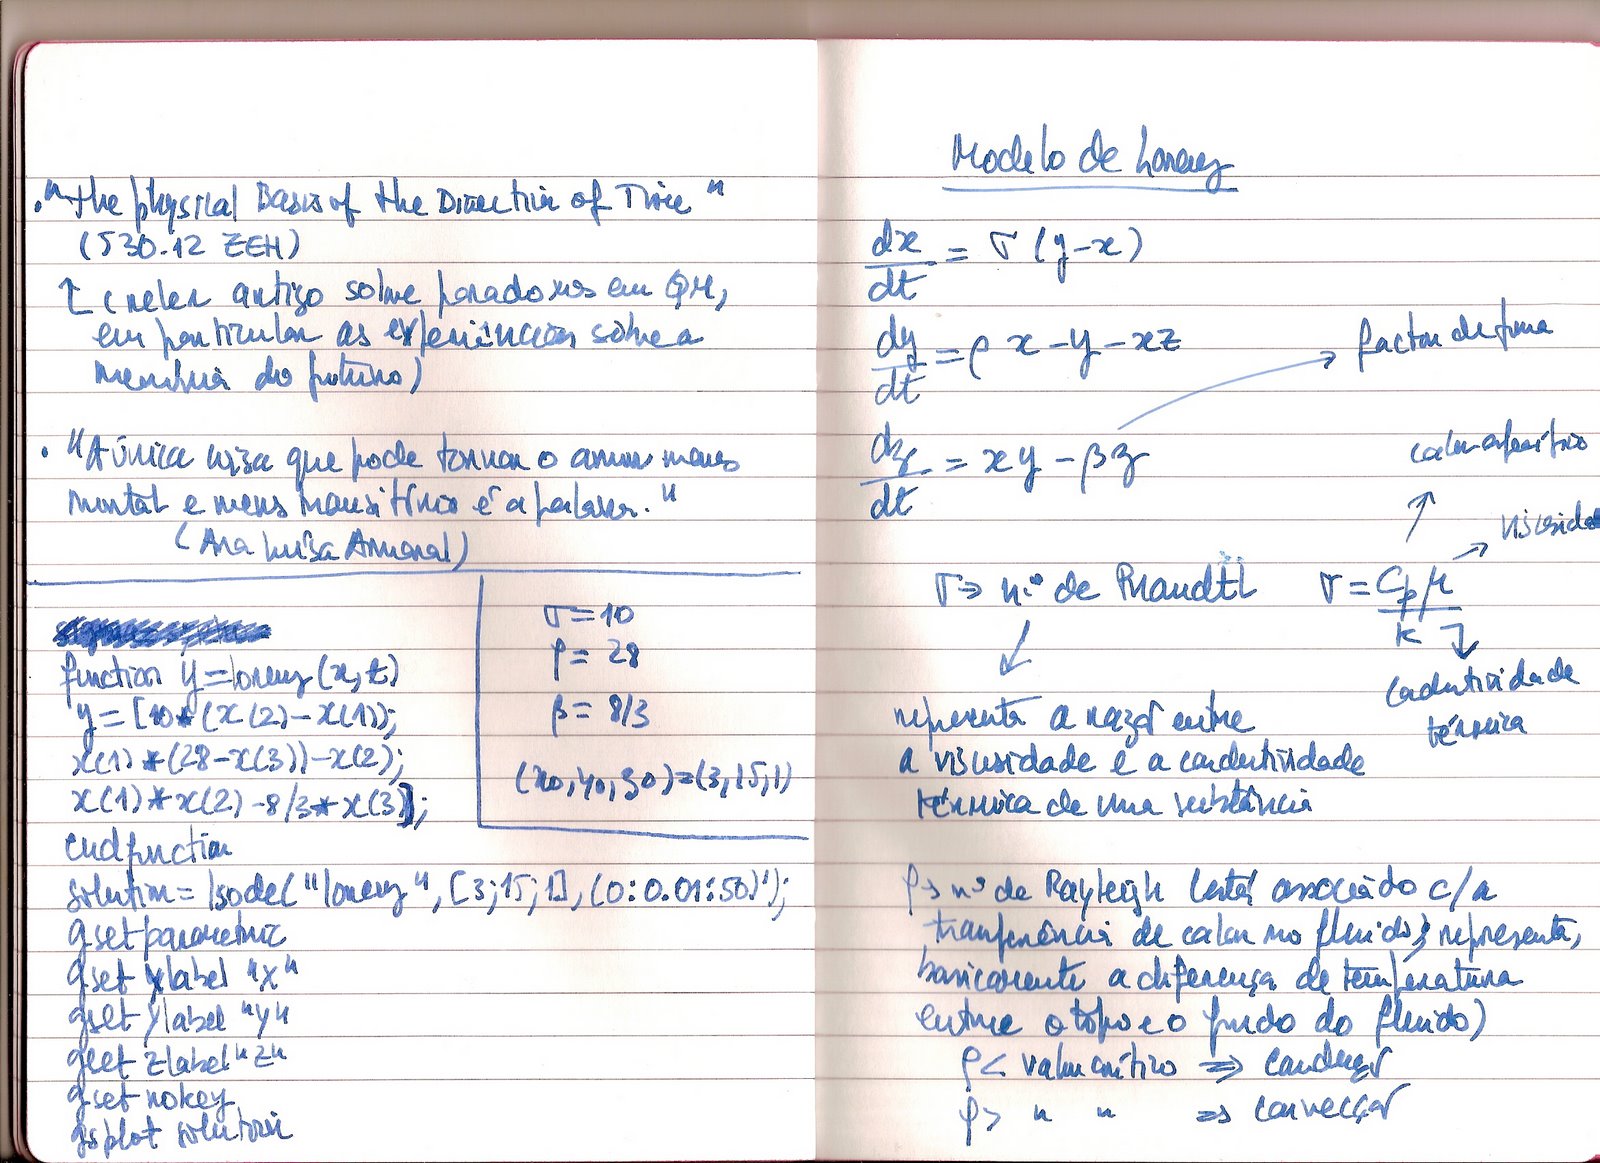 . "The physical Basis of the Direction of Time"
(530.12 ZEH)
↑ (reler artigo sobre paradoxos em QM,
em particular as experiências sobre a
memória do futuro)
. "A única coisa que pode tornar o amor menos
mortal e menos transitório é a palavra."
(Ana Luísa Amaral)
function y=lorenz(x,t)
y=[10*(x(2)-x(1));
x(1)*(28-x(3))-x(2);
x(1)*x(2)-8/3*x(3)];
endfunction
solution=lsode("lorenz",[3;15;1],(0:0.01:50)');
gset parametric
gset xlabel "x"
gset ylabel "y"
gset zlabel "z"
gset nokey
gsplot solution
σ=10
ρ= 28
β= 8/3
(x0,y0,z0)=(3,15,1)
Modelo de Lorenz
dx/dt = σ (y-x)
dy/dt = ρ x-y-xz
factor de forma
dz/dt = xy-βz
calor específico
viscosidade
σ → n.º de Prandtl σ = Cpμ/K
condutividade
térmica
representa a razão entre
a viscosidade e a condutividade
térmica de uma substância
ρ → nº de Rayleigh (está associado c/ a
tranferência de calor no fluido; representa,
basicamente a diferença de temperatura
entre o topo e o fundo do fluido)
ρ< valor crítico ⇒ condução
ρ> " " ⇒ convecção